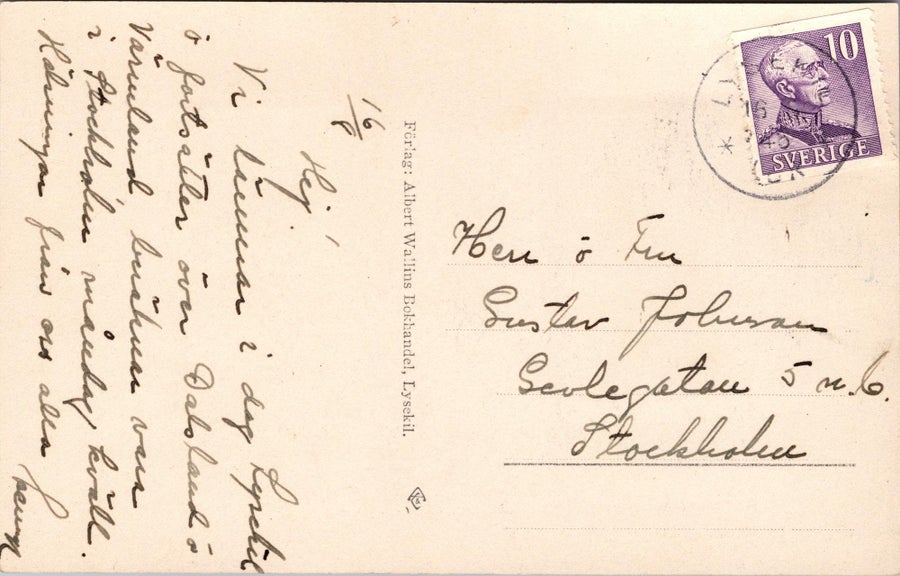 16/8
Hej!
Vi lämnar i dag Lysekil
o fortsätter över Dalsland o
Värmland beräknar vara
i Stockholm måndag kväll.
Hälsningar från oss alla
Förlag: Albert Wallins Bokhandel, Lysekil.
10
SVERIGE
LYSEKIL
16
45
Herr o Fru
Gustav Johnson
5 n.b.
Stockholm